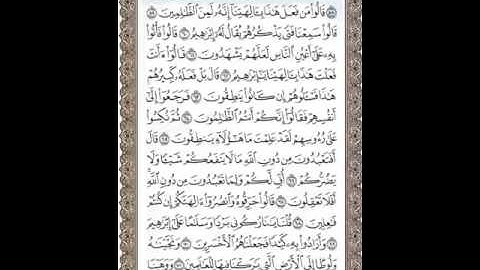 ٥٨ قَالُوا۟ مَن فَعَلَ هَٰذَا بِـَٔالِهَتِنَآ إِنَّهُۥ لَمِنَ ٱلظَّٰلِمِينَ ٥٩
قَالُوا۟ سَمِعْنَا فَتًى يَذْكُرُهُمْ يُقَالُ لَهُۥٓ إِبْرَٰهِيمُ ٦٠ قَالُوا۟ فَأْتُوا۟
بِهِۦ عَلَىٰٓ أَعْيُنِ ٱلنَّاسِ لَعَلَّهُمْ يَشْهَدُونَ ٦١ قَالُوٓا۟ ءَأَنتَ
فَعَلْتَ هَٰذَا بِـَٔالِهَتِنَا يَٰٓإِبْرَٰهِيمُ ٦٢ قَالَ بَلْ فَعَلَهُۥ كَبِيرُهُمْ
هَٰذَا فَسْـَٔلُوهُمْ إِن كَانُوا۟ يَنطِقُونَ ٦٣ فَرَجَعُوٓا۟ إِلَىٰٓ
أَنفُسِهِمْ فَقَالُوٓا۟ إِنَّكُمْ أَنتُمُ ٱلظَّٰلِمُونَ ٦٤ ثُمَّ نُكِسُوا۟
عَلَىٰ رُءُوسِهِمْ لَقَدْ عَلِمْتَ مَا هَٰٓؤُلَآءِ يَنطِقُونَ ٦٥ قَالَ
أَفَتَعْبُدُونَ مِن دُونِ ٱللَّهِ مَا لَا يَنفَعُكُمْ شَيْـًٔا وَلَا
يَضُرُّكُمْ ٦٦ أُفٍّ لَّكُمْ وَلِمَا تَعْبُدُونَ مِن دُونِ ٱللَّهِ
أَفَلَا تَعْقِلُونَ ٦٧ قَالُوا۟ حَرِّقُوهُ وَٱنصُرُوٓا۟ ءَالِهَتَكُمْ إِن كُنتُمْ
فَٰعِلِينَ ٦٨ قُلْنَا يَٰنَارُ كُونِى بَرْدًا وَسَلَٰمًا عَلَىٰٓ إِبْرَٰهِيمَ
٦٩ وَأَرَادُوا۟ بِهِۦ كَيْدًا فَجَعَلْنَٰهُمُ ٱلْأَخْسَرِينَ ٧٠ وَنَجَّيْنَٰهُ
وَلُوطًا إِلَى ٱلْأَرْضِ ٱلَّتِى بَٰرَكْنَا فِيهَا لِلْعَٰلَمِينَ ٧١ وَوَهَبْنَا